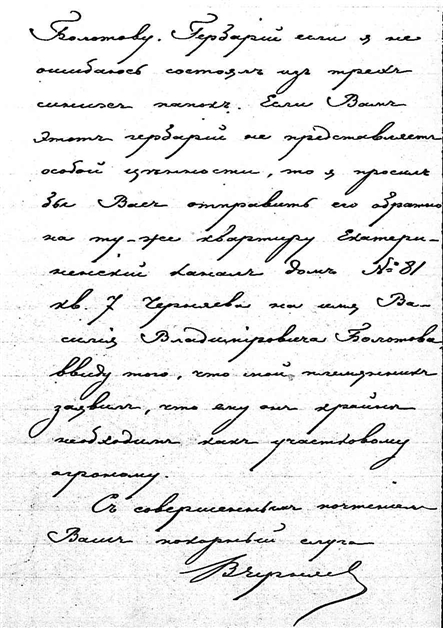 Болотову. Гербарій если я не
ошибаюсь состоялъ изъ трехъ
синихъ папокъ. Если Вамъ
этотъ гербарій не представляетъ
особой цѣнности, то я просилъ
бы Васъ отправить его обратно
на ту-же квартиру Екатери-
ненскій каналъ домъ № 81
кв. 7 Черняева на имя Ва-
силія Владиміровича Болотова,
ввиду того, что мой племянникъ
заявилъ, что ему онъ крайне
необходимъ какъ участковому
агроному.
Съ совершеннымъ почтеніемъ
Вашъ покорный слуга
ВЧерняев